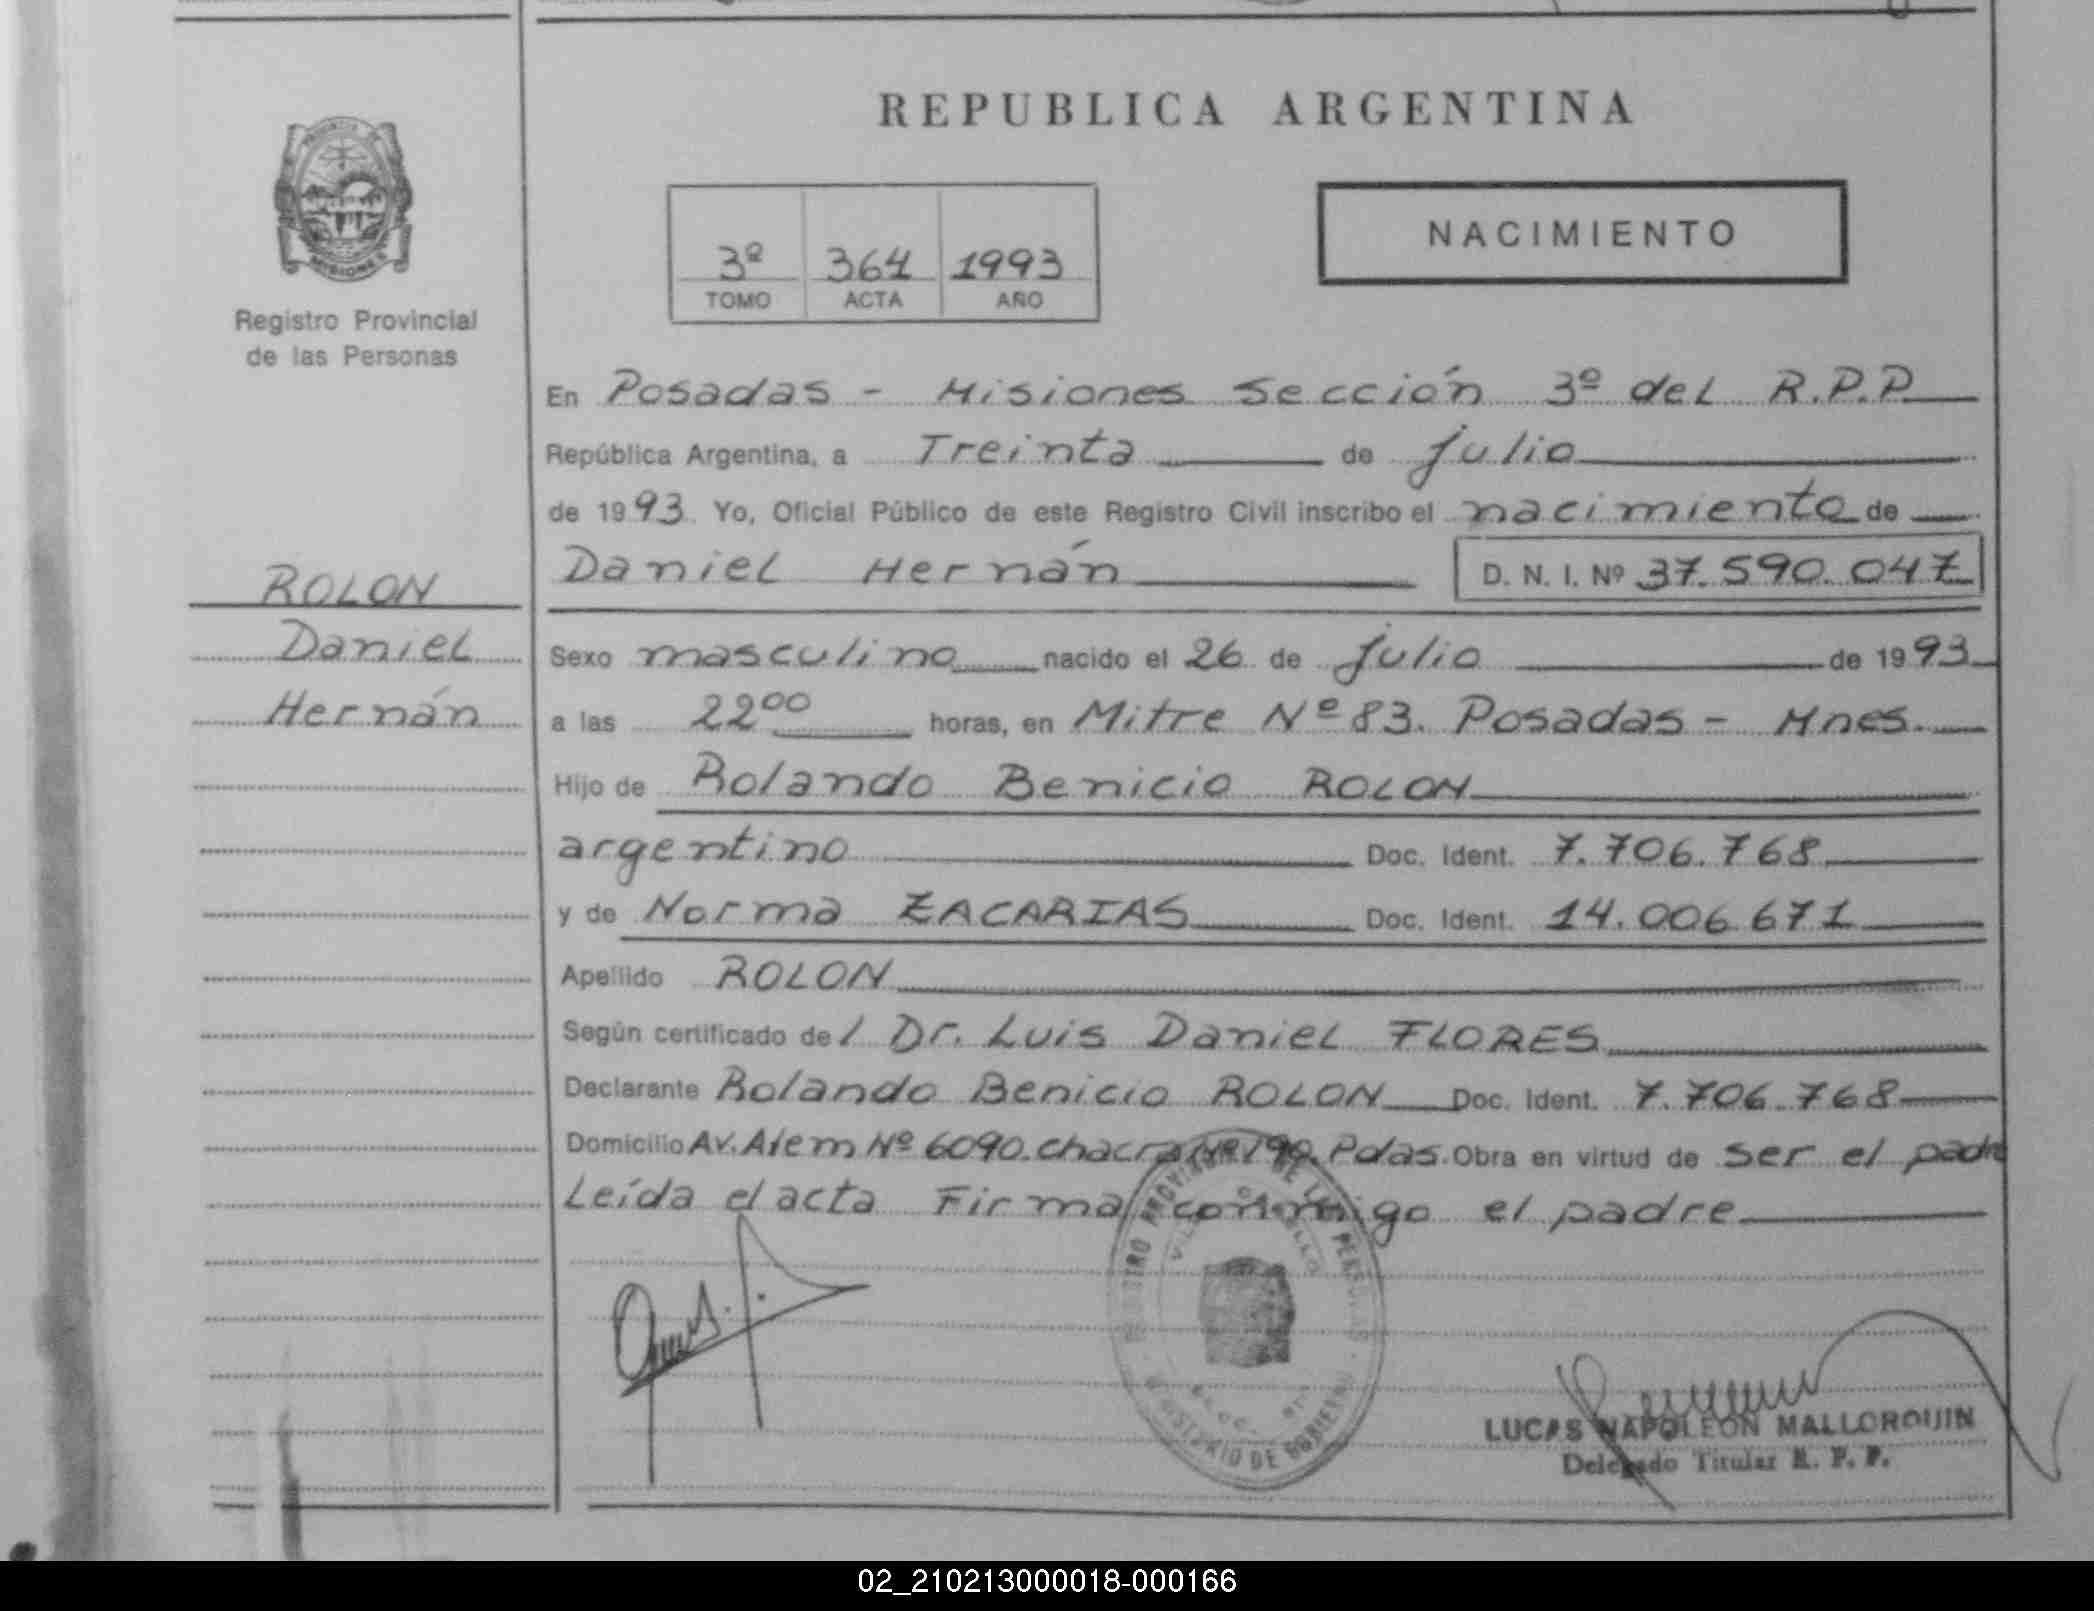 REPUBLICA ARGENTINA
MISIONES
Registro Provincial
de las Personas
3º 364 1993
TOMO ACTA AÑO
NACIMIENTO
ROLON
Daniel
Hernán
En Posadas - Misiones Sección 3º del R.P.P.
República Argentina, a Treinta de julio
de 1993 Yo, Oficial Público de este Registro Civil inscribo el nacimiento de
Daniel Hernán D. N. I. Nº 37.590.047
Sexo masculino nacido el 26 de julio de 1993
a las 22 00 horas, en Mitre Nº 83. Posadas - Mnes.
Hijo de Rolando Benicio ROLON
argentino Doc. Ident. 7.706.768
y de Norma ZACARIAS Doc. Ident. 14.006.671
Apellido ROLON
Según certificado del Dr. Luis Daniel FLORES
Declarante Rolando Benicio ROLON Doc. Ident. 7.706.768
Domicilio Av. Alem Nº 6090. chacra Nº 190. Pdas. Obra en virtud de ser el padre
Leída el acta Firma conmigo el padre
REGISTRO PROVINCIAL DE LAS PERSONAS
MINISTERIO DE GOBIERNO
LUCAS NAPOLEON MALLORQUIN
Delegado Titular R. P. P.
02_210213000018-000166